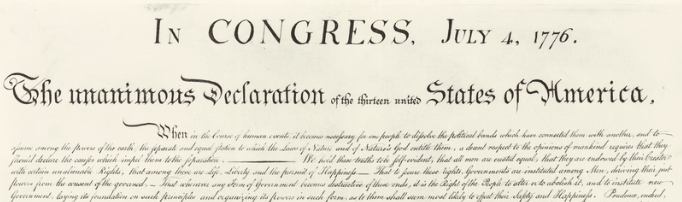 IN CONGRESS, JULY 4, 1776.
The unanimous Declaration of the thirteen united States of America,
When in the Course of human events, it becomes necessary for one people to dissolve the political bands which have connected them with another, and to
assume among the powers of the earth, the separate and equal station to which the Laws of Nature and of Nature's God entitle them, a decent respect to the opinions of mankind requires that they
should declare the causes which impel them to the separation. ——— We hold these truths to be self-evident, that all men are created equal, that they are endowed by their Creator
with certain unalienable Rights, that among these are Life, Liberty and the pursuit of Happiness.— That to secure these rights, Governments are instituted among Men, deriving their just
powers from the consent of the governed,— That whenever any Form of Government becomes destructive of these ends, it is the Right of the People to alter or to abolish it, and to institute new
Government, laying its foundation on such principles and organizing its powers in such form, as to them shall seem most likely to effect their Safety and Happiness. Prudence, indeed,